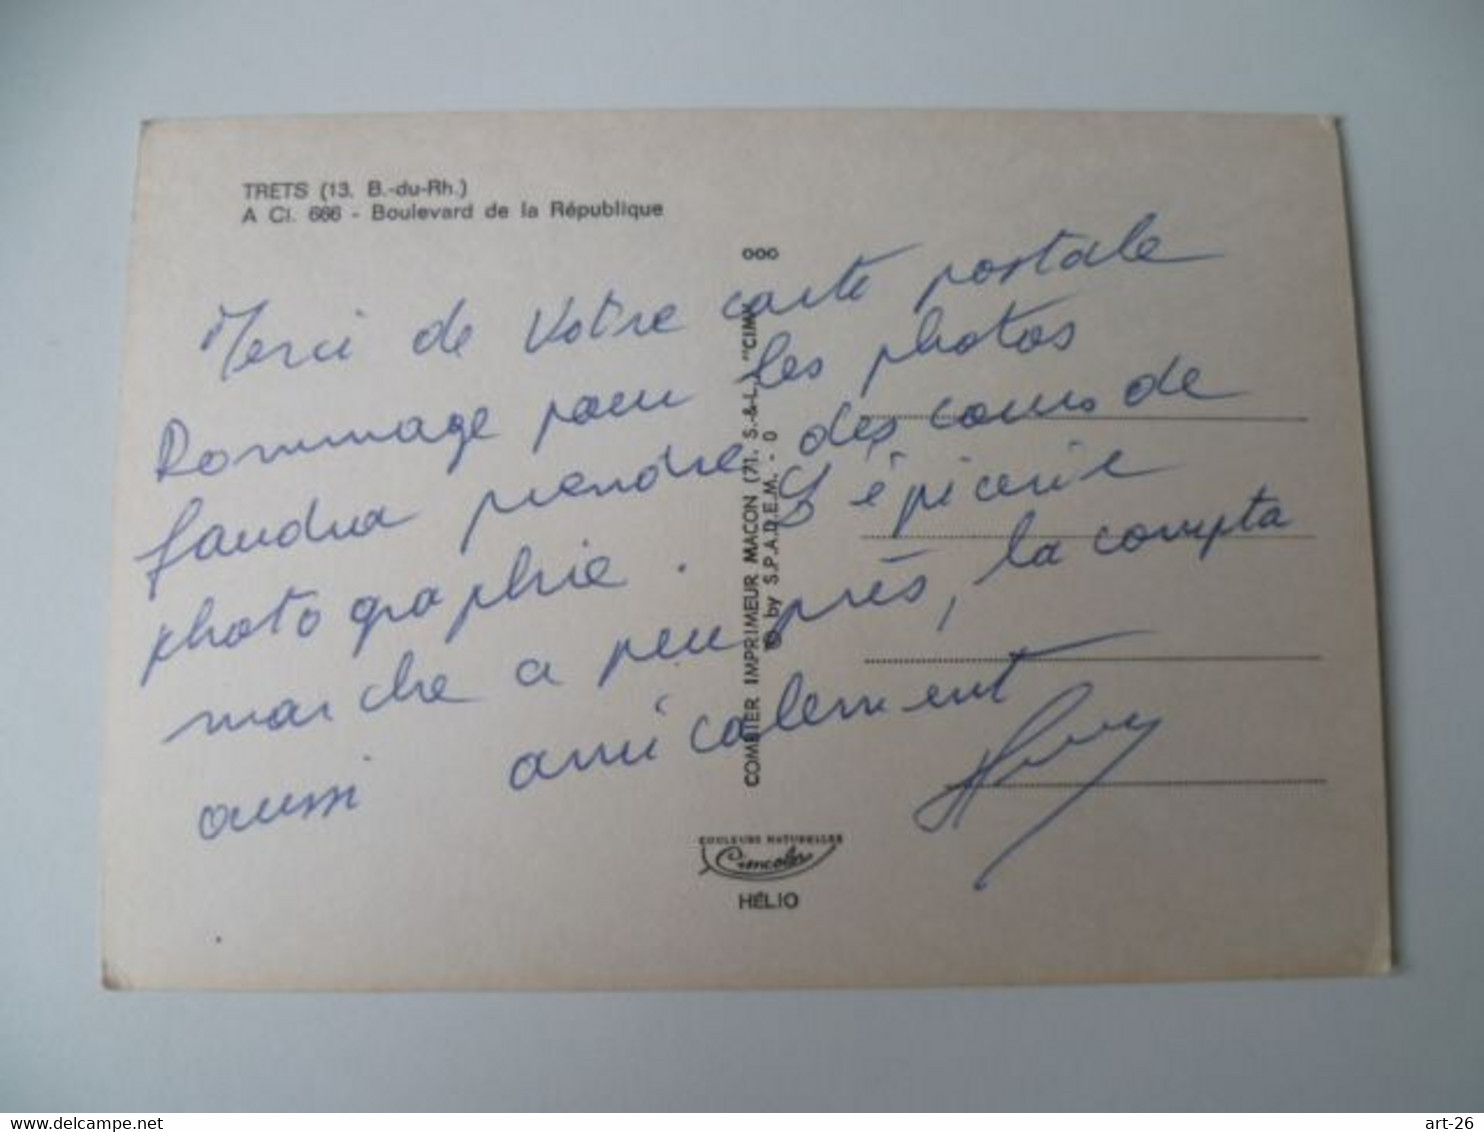 TRETS (13. B.-du-Rh.)
A Ci. 666 - Boulevard de la République
Merci de Votre carte postale
Dommage pour les photos
faudra prendre des cours de
photographie. L'épicerie
marche a peu près, la compta
aussi amicalement
COMBIER IMPRIMEUR MACON (71. S.-&-L.) "CIM"
© by S.P.A.D.E.M. - 0
000
COULEURS NATURELLES
Cimcolor
HÉLIO
www.delcampe.net
art-26